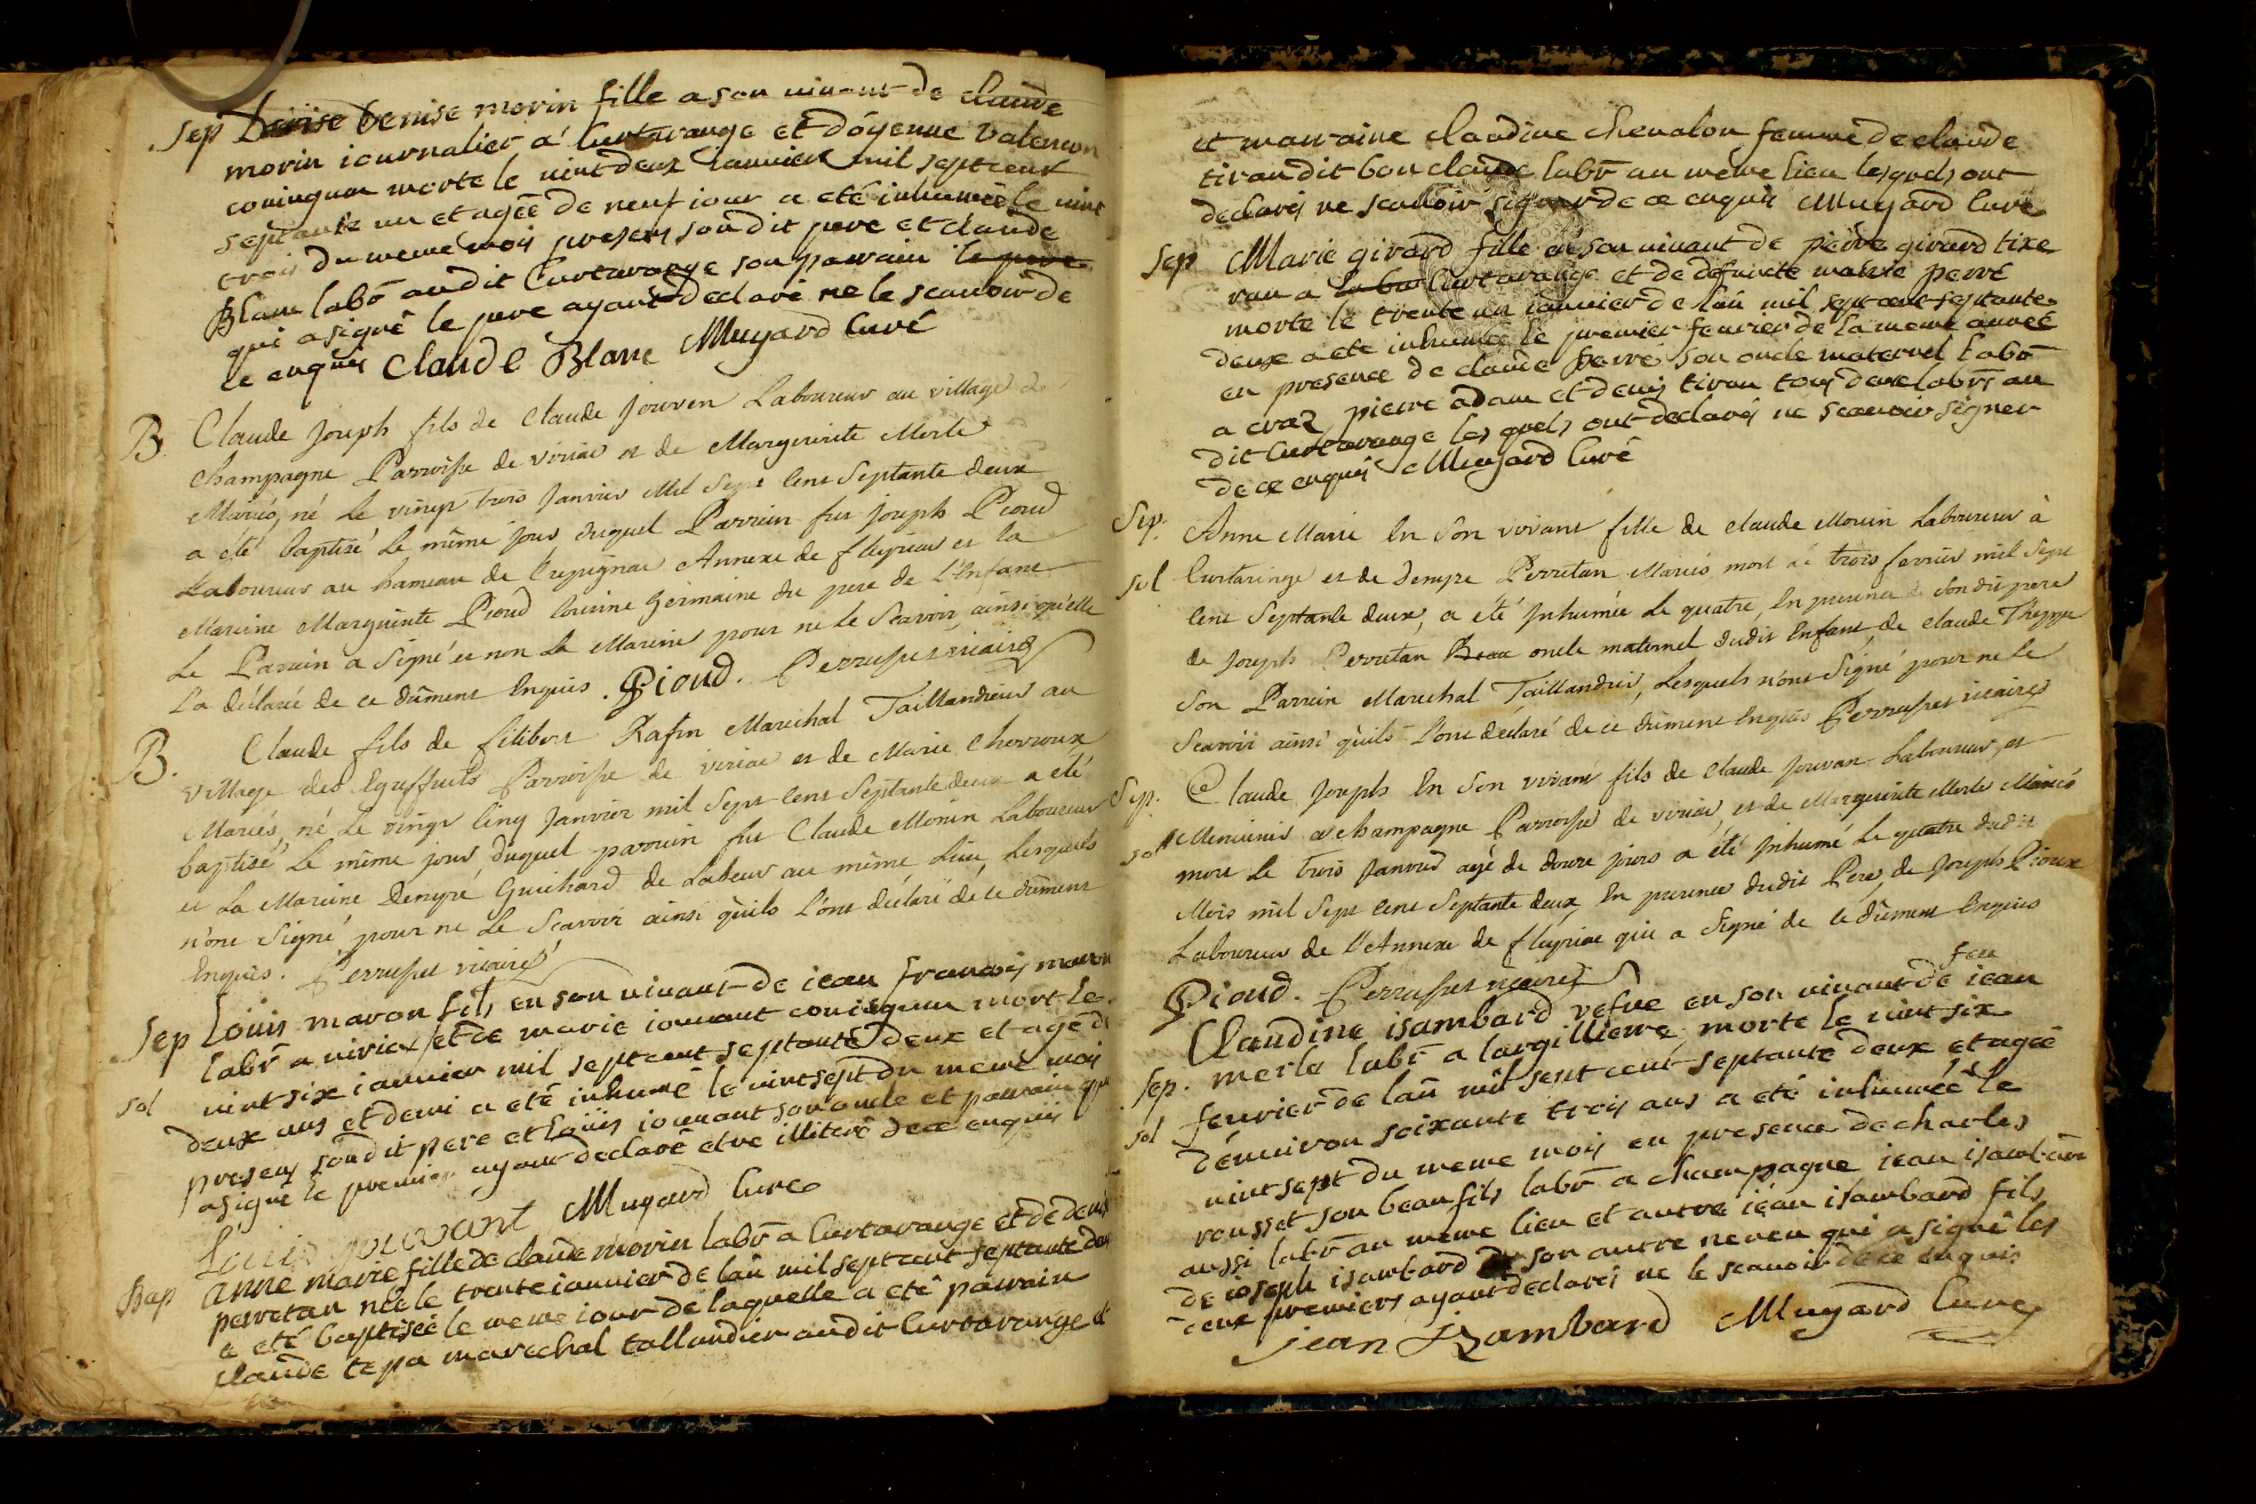 Sep Denise benise morin fille a son vivant de claude
morin iournalier a Curtarange et d'oyenne Valencon
coniingaux morte le vint deux ianvier mil sept cent
septante un et agée de neuf iour a eté inhumée le vint
trois du meme mois presens son dit pere et claude
Blanc labr audit Curtarange son parrain le pere
qui a signé le pere ayant declaré ne le scauoir de
ce enquis Claude Blanc Muyard Curé
B. Claude Joseph fils de Claude Jouven Laboureur au village de
Champagne Parroisse de viriac et de Marguerite Merle
Mariés, né Le vingt trois Janvier Mil Sept Cent Septante deux
a été baptisé Le même jour duquel Parrain fut Joseph Pioud
Laboureur au hameau de Crepignac Annexe de fleyriac et la
Mareine Marguerite Pioud Cousine Germaine du pere de L'Enfant
Le Parrain a Signé et non La Mareine pour ne Le Scavoir, ainsi qu'elle
L'a déclaré de ce dûment Enquis. Pioud. Perruset vicaire
B. Claude fils de filibert Rafin Marechal Taillandier au
village des Greffiets Parroisse de viriac et de Marie Chevroux
Mariés, né Le vingt Cinq Janvier mil Sept Cent Septante deux a été
baptisé Le même jour, duquel parrain fut Claude Monin Laboureur
et La Mareine Denyse Guichard de Labeur au même Lieu, Lesquels
n'ont Signé pour ne Le Scavoir ainsi qu'ils L'ont déclaré de ce dûment
Enquis. Perruset vicaire
Sep Louis maron fils en son vivant de iean francois maron
labr a viriex et de marie iouuant conisquun mort le
vint six ianvier mil sept cent septante deux et agé de
sol
deux ans et demi a eté inhumé le vint sept du meme mois
presens son dit pere et Loüis iouuant son oncle et parrain qui
a signé le premier ayant declaré etre illiteré de ce enquis
Louis jouvant Muyard Curé
Bap anne marie fille de claude morin labr a Curtarange et de denise
perretan née le trente ianvier de l'an mil sept cent septante deux
a eté baptisée le meme iour de laquelle a eté parrain
claude tepa marechal tallandier audit Curtarange et
et marraine claudine chevalon femme de claude
tiran dit bon claude labr au même lieu lesquels ont
declarés ne scauoir signer de ce enquis Muyard Curé
Sep Marie girard fille en son vivant de pierre girard tixe
ran a labor Curtarange et de defuncte marie perré
morte le trente un ianvier de l'an mil sept cent septante
deux a eté inhumée le premier fevrier de la meme année
en presence de claude perré son oncle maternel labr
a craz pierre adam et denis tiran tous deux labrs au
dit Curtarange les quels ont declarés ne scauoir signer
de ce enquis Muyard Curé
Sep. Anne Marie En Son vivant fille de Claude Monin Laboureur à
sol Curtaringe et de Denyse Perretan Mariés mort Le trois fevrier mil Sept
Cent Septante deux, a été Inhumée Le quatre, En presence de Son dit pere
de Joseph Perretan Beau oncle maternel dudit Enfant, de Claude Theppe
Son Parrain Marechal Taillandier, Lesquels n'ont Signé pour ne Le
Scavoir ainsi qu'ils L'ont déclaré de ce dûment Enquis Perruset vicaire
Sep. Claude Joseph En Son vivant fils de Claude Jouvan Laboureur, et
sol Menuisier a Champagne Parroisse de viriac, et de Marguerite Merle Mariés
mort Le trois Janvier agé de douze jours a été Inhumé Le quatre dudit
Mois mil Sept Cent Septante deux, En presence dudit Pere, de Joseph Pioux
Laboureur de L'Annexe de fleyriac qui a Signé de ce dûment Enquis
Pioud. Perruset vicaire
feu
Claudine isambard vefve en son vivant de iean
Sep. merle labr a largilliere morte le vint six
fevrier de l'an mil sept cent septante deux et agée
sol d'environ soixante trois ans a eté inhumée le
vint sept du meme mois en presence de charles
rousset son beau fils labr a champagne iean isambard
aussi labr au meme lieu et autre iean isambard fils
de ioseph isambard son autre neveu qui a signé les
deux premiers ayant declarés ne le scauoir de ce enquis
jean Isambard Muyard Curé